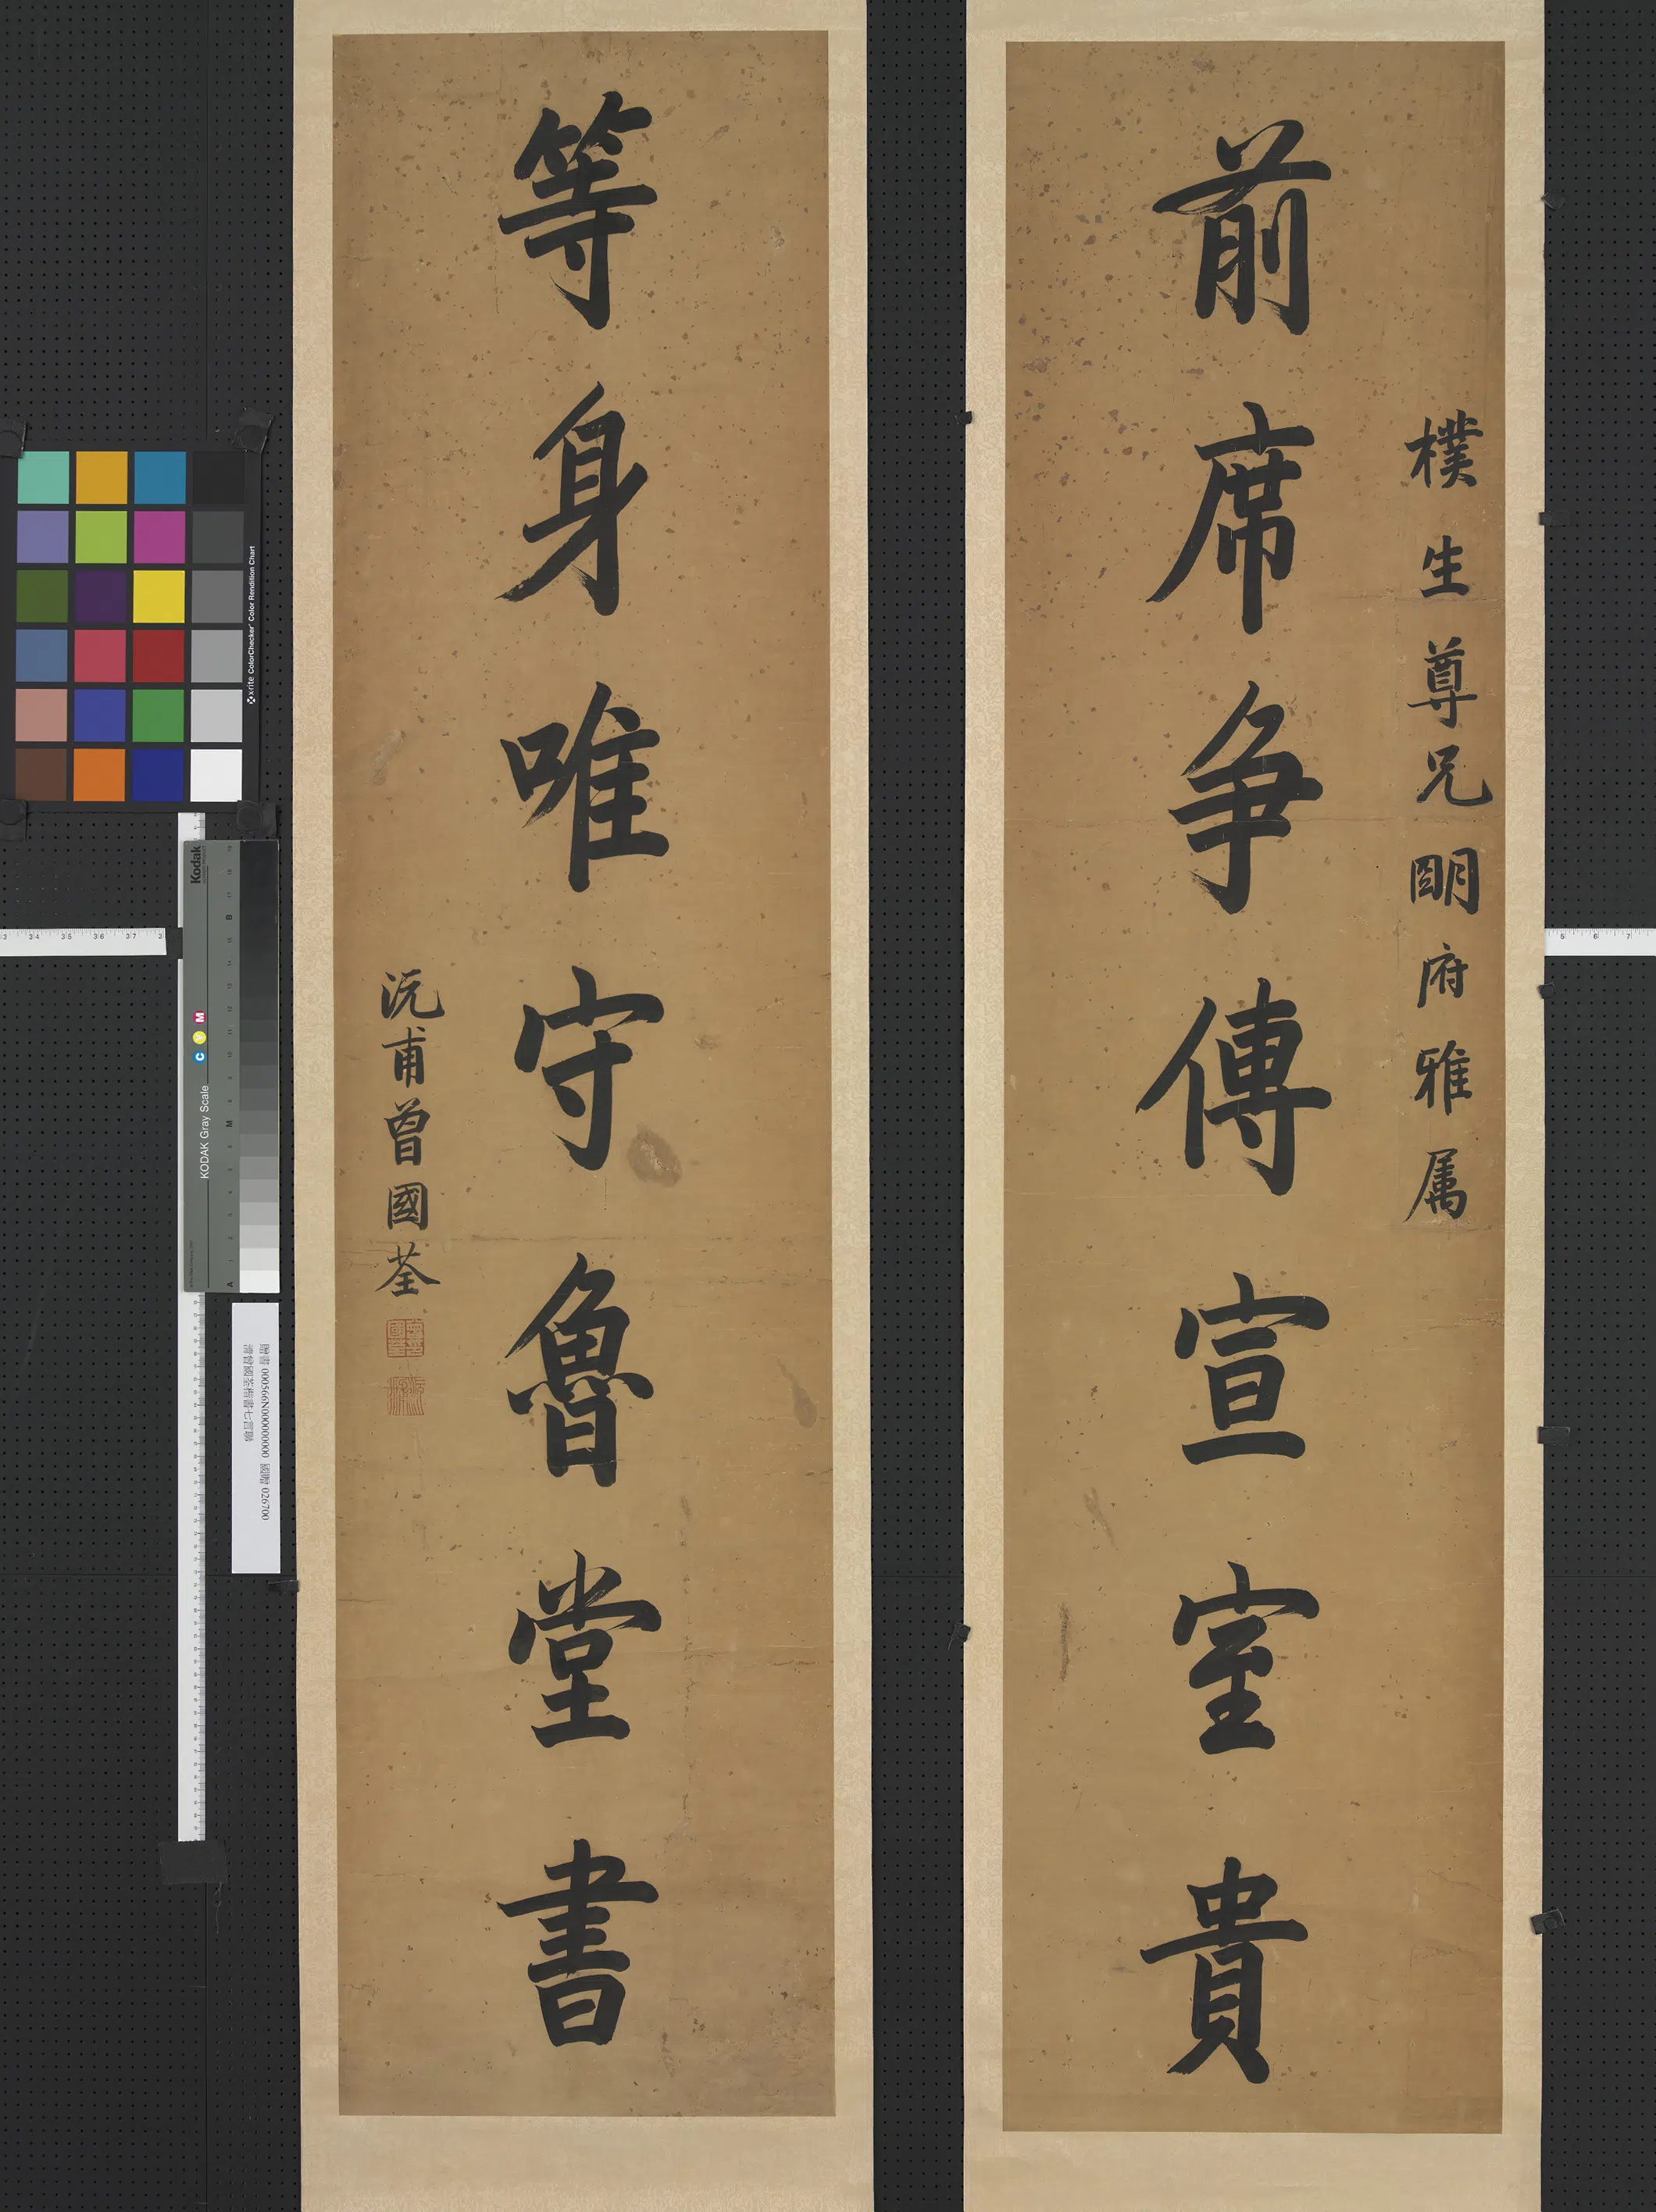 樸生尊兄明府雅属
前席争傳宣室貴
等身唯守魯堂書
沅甫曾國荃
贈書 000566N000000000 國贈 026700
清曾國荃楷書七言聯
x-rite ColorChecker® Color Rendition Chart
Kodak
KODAK Gray Scale
C Y M
A
M
B